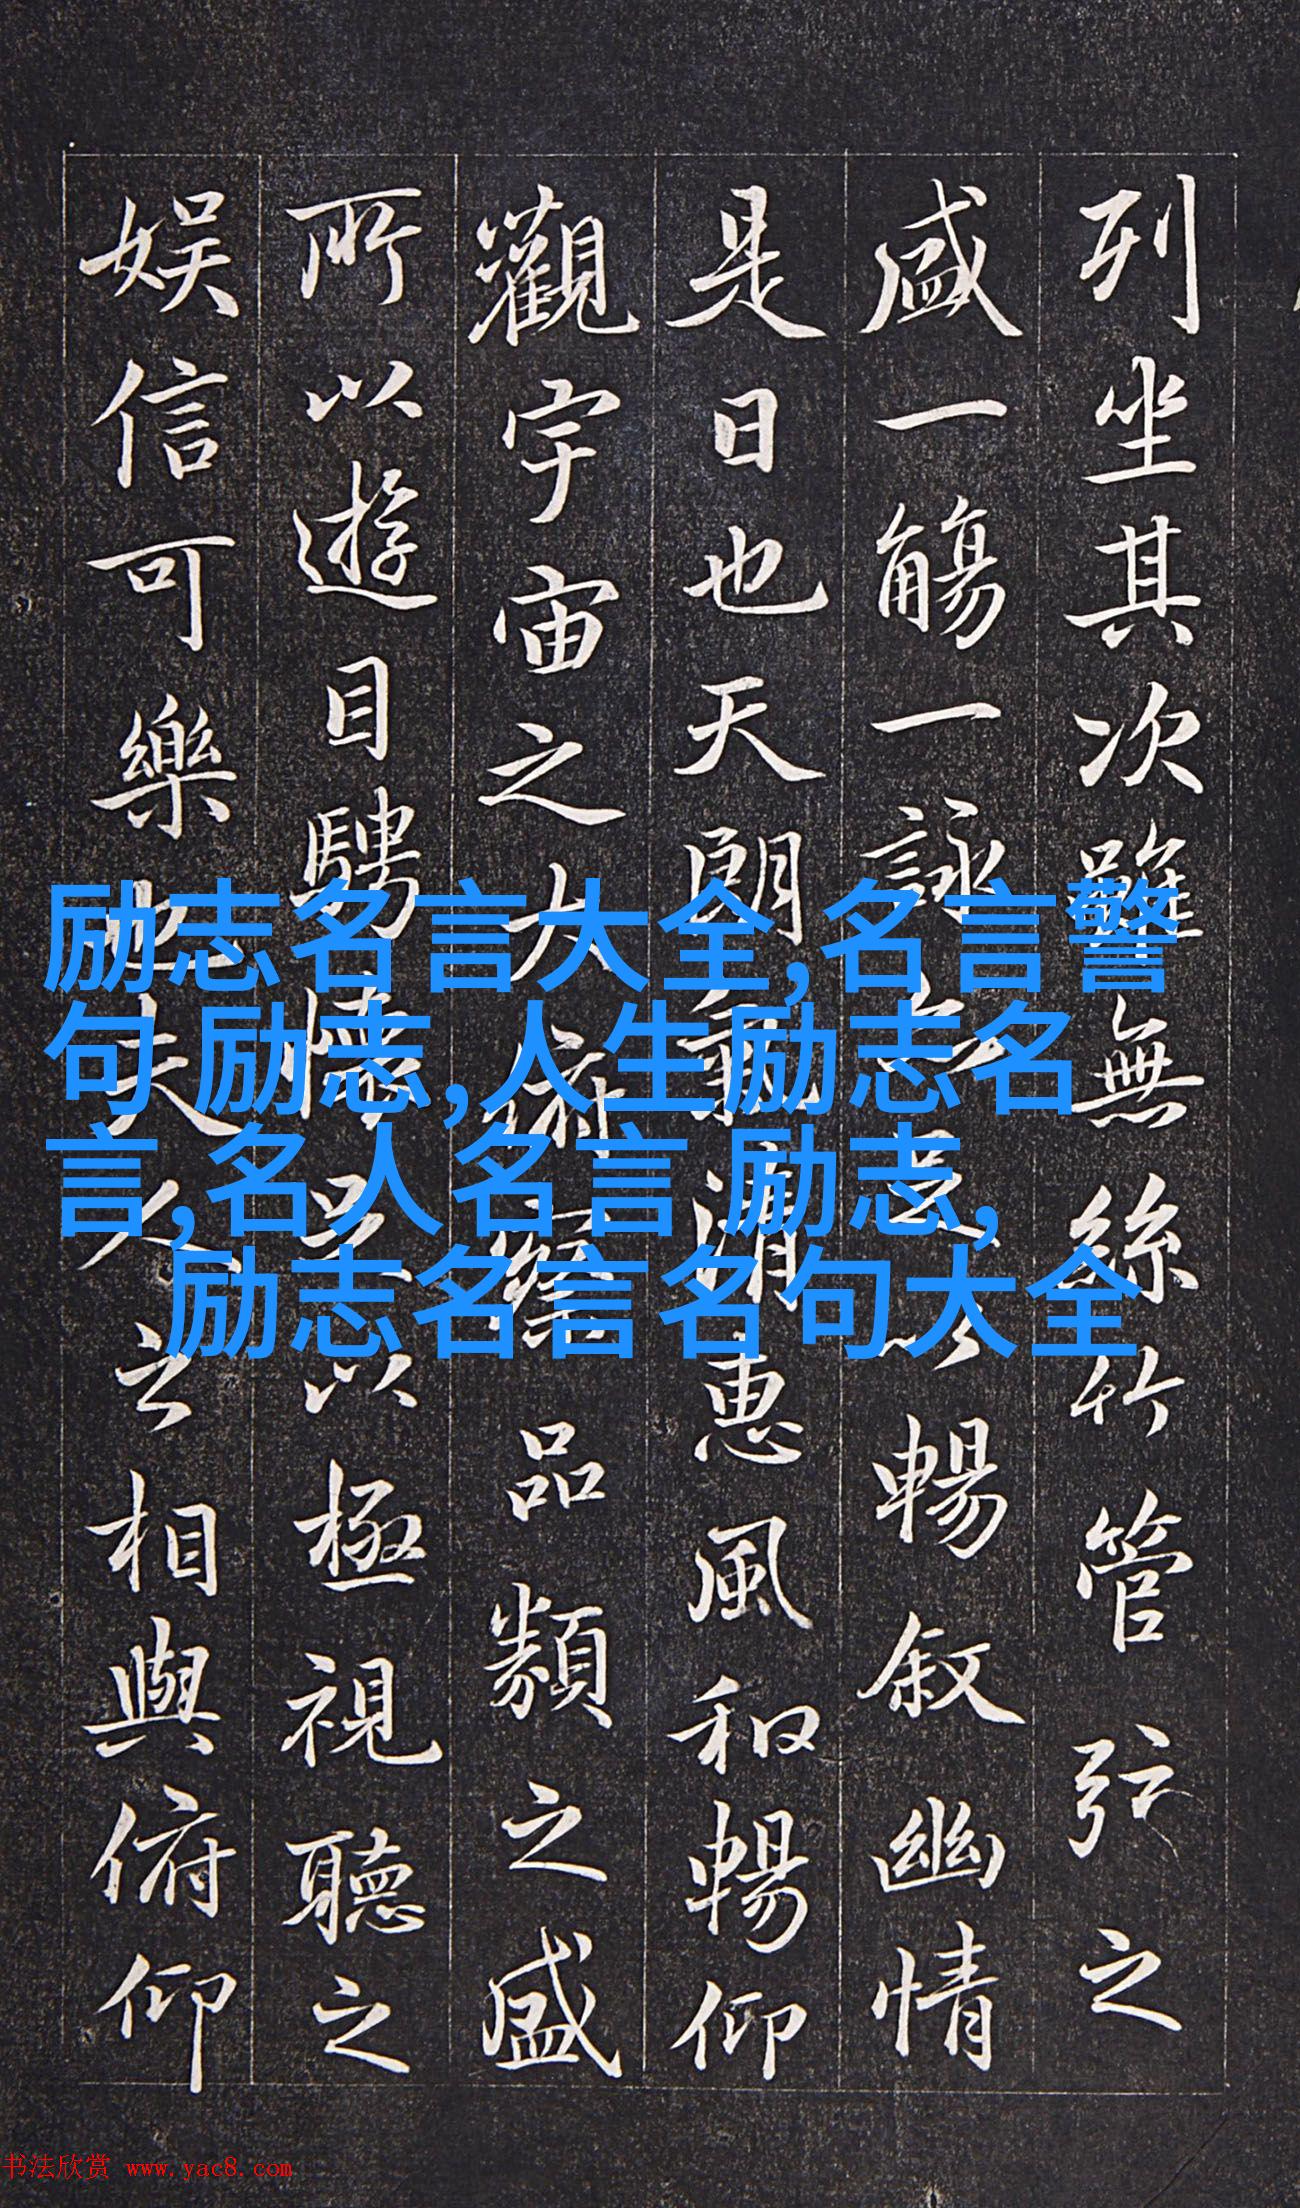 列坐其次雖無絲竹管弦之
盛一觴一詠亦足以暢敘幽情
是日也天朗氣清惠風和暢仰
觀宇宙之大俯察品類之盛
所以遊目騁懷足以極視聽之
娛信可樂也夫人之相與俯仰
励志名言大全,名言警
句 励志,人生励志名
言,名人名言 励志,
励志名言名句大全
书法欣赏 www.yac8.com